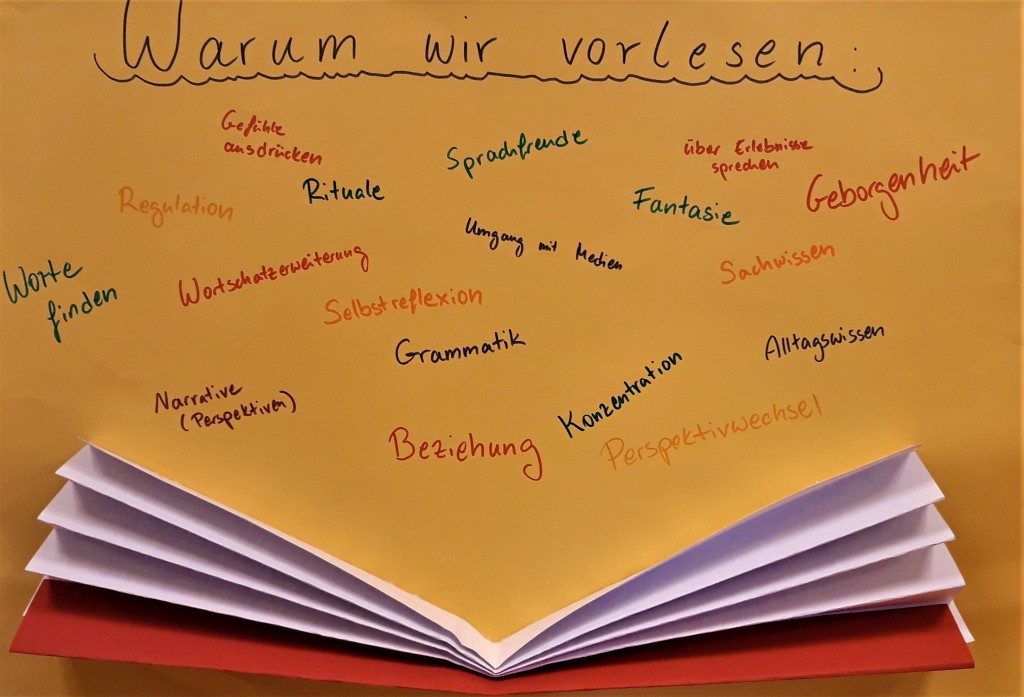 Warum wir vorlesen:
Gefühle
ausdrücken
Sprachfreude
über Erlebnisse
sprechen
Geborgenheit
Regulation
Rituale
Fantasie
Umgang mit Medien
Worte
finden
Wortschatzerweiterung
Sachwissen
Selbstreflexion
Grammatik
Alltagswissen
Narrative
(Perspektiven)
Konzentration
Beziehung
Perspektivwechsel